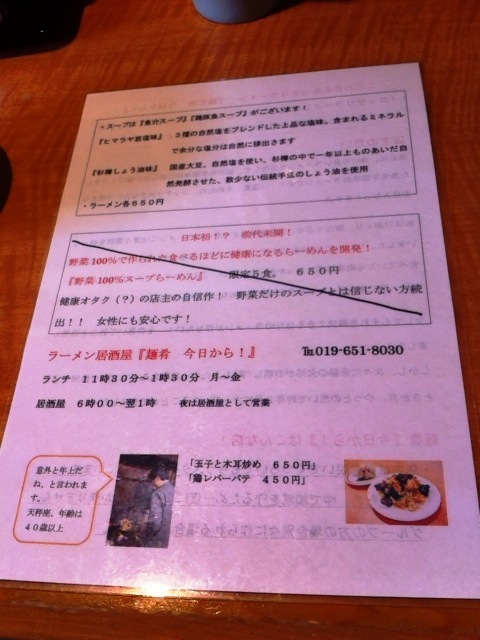 ・スープは『魚介スープ』『鶏豚魚スープ』がございます！
『ヒマラヤ岩塩味』 3種の自然塩をブレンドした上品な塩味、含まれるミネラル
で余分な塩分は自然に排出さます
『杉樽しょう油味』 国産大豆、自然塩を使い、杉樽の中で一年以上ものあいだ自
然発酵させた、数少ない伝統手法のしょう油を使用
・ラーメン各650円
日本初！？ 前代未聞！
野菜100%で作られた食べるほどに健康になるらーめんを開発！
『野菜100%スープらーめん』 限定5食。 650円
健康オタク（？）の店主の自信作！ 野菜だけのスープとは信じない方続
出！！ 女性にも安心です！
ラーメン居酒屋『麺肴 今日から！』 ℡019-651-8030
ランチ 11時30分～1時30分 月～金
居酒屋 6時00～翌1時 夜は居酒屋として営業
意外と年上だ
ね、と言われま
す。
天秤座、年齢は
40歳以上
「玉子と木耳炒め 650円」
「鶏レバーパテ 450円」